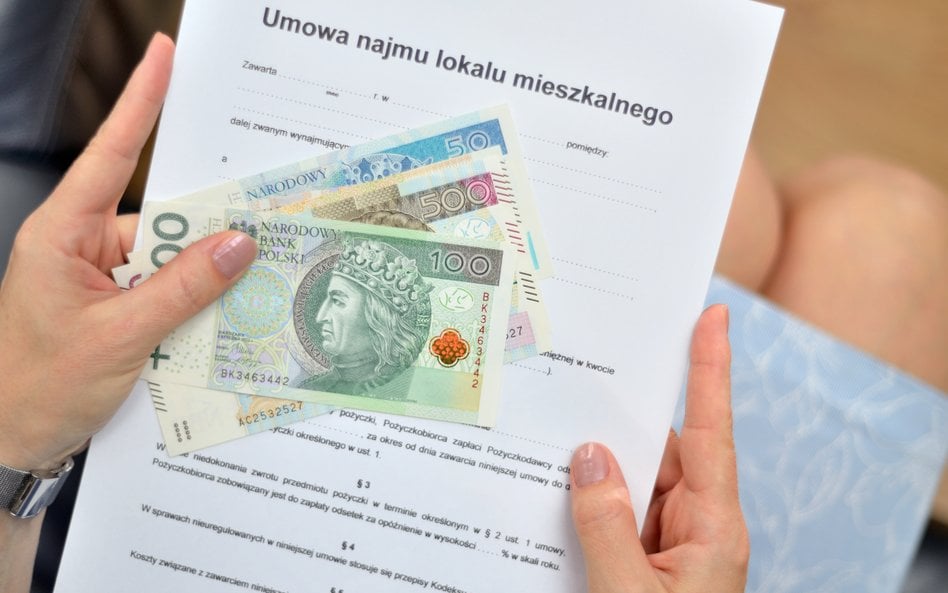 Umowa najmu lokalu mieszkalnego
Zawarta
r. w
pomiędzy:
dalej zwanym wynajmującym
a
50
NARODOWY
500
NARODOWY
BANK
POLSKI
100
100
BK3463442
BK3463442
AC2532527
527
w kwocie
).
pożyczki, Pożyczkobiorca zapłaci Pożyczkodawcy
określonego w ust. 1. , za okres od dnia zawarcia niniejszej umowy do
§ 3
niedokonania zwrotu przedmiotu pożyczki w terminie określonym w § 2 ust. 1 umowy,
Pożyczkobiorca zobowiązany jest do zapłaty odsetek za opóźnienie w wysokości ..... % w skali roku.
§ 4
W sprawach nieuregulowanych w niniejszej umowie stosuje się przepisy Kodeksu
Koszty związane z zawarciem